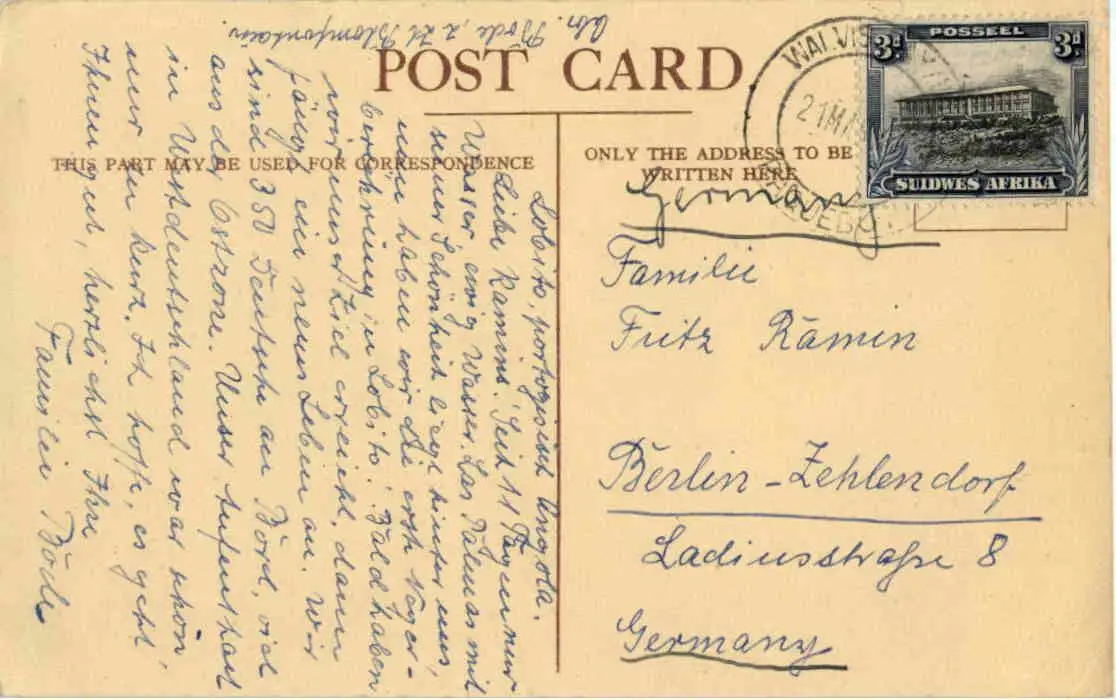 POST CARD
THIS PART MAY BE USED FOR CORRESPONDENCE
ONLY THE ADDRESS TO BE
WRITTEN HERE
3d POSSEEL 3d
SUIDWES AFRIKA
WALVIS
21 MA
Germany
Familie
Fritz Ramin
Berlin-Zehlendorf
Ladiusstraße 8
Germany
Lobito, portogisisch Angola.
Liebe Ramins! Seit 11 Tagen nur
Wasser ewig Wasser. Las Palmas mit
seiner Schönheit liegt hinter uns,
nun haben wir die erste Neger-
berührung in Lobito. Bald haben
wir unser Ziel erreicht, dann
fängt ein neues Leben an. Wir
sind 350 Deutsche an Bord, viel
aus der Ostzone. Unser Aufenthalt
in Westdeutschland war schön,
nur zu kurz. Ich hoffe, es geht
Ihnen gut, herzlichst Ihre
Familie Böde
Abs. Böde, z Zt Blomfontain